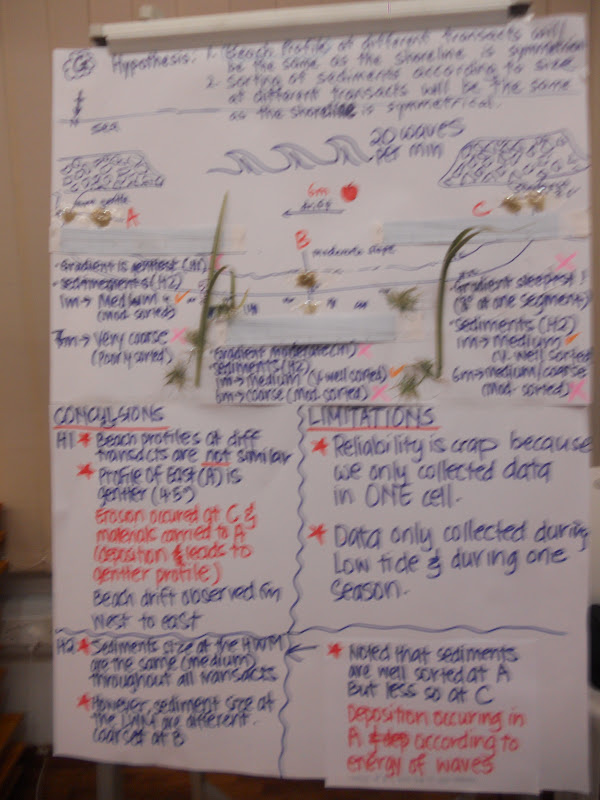 G2
Hypothesis: 1. Beach Profiles at different transects will
be the same as the shoreline is symmetrical
2. Sorting of sediments according to size
at different transects will be the same
as the shoreline is symmetrical.
N
sea
20 waves
per min
6m
drift
A
B
C
moderate slope
- Gradient is gentlest (H1)
- Sediments (H2)
1m → Medium
(mod. sorted)
7m → Very coarse
(Poorly sorted)
- Gradient moderate (H1)
- Sediments (H2)
1m → medium (v. well sorted)
6m → coarse (Mod. sorted)
- Gradient steepest!
(8° at one segment)
- Sediments (H2)
1m → medium
(v. well sorted)
6m → medium/coarse
(mod. sorted)
CONCLUSIONS
H1 * Beach profiles at diff
transects are not similar
* Profile of East (A) is
gentler (4.5°)
Erosion occured at C &
materials carried to A
(deposition & leads to
gentler profile)
Beach drift observed fm
West to east
H2 * Sediments size at the HWM
are the same (medium)
throughout all transacts
* However, sediment size at
the LWM are different.
coarsest at B
LIMITATIONS
* Reliability is crap because
we only collected data
in ONE cell.
* Data only collected during
Low tide & during one
season.
* Noted that sediments
are well sorted at A
But less so at C
Deposition occuring in
A according to
energy of waves